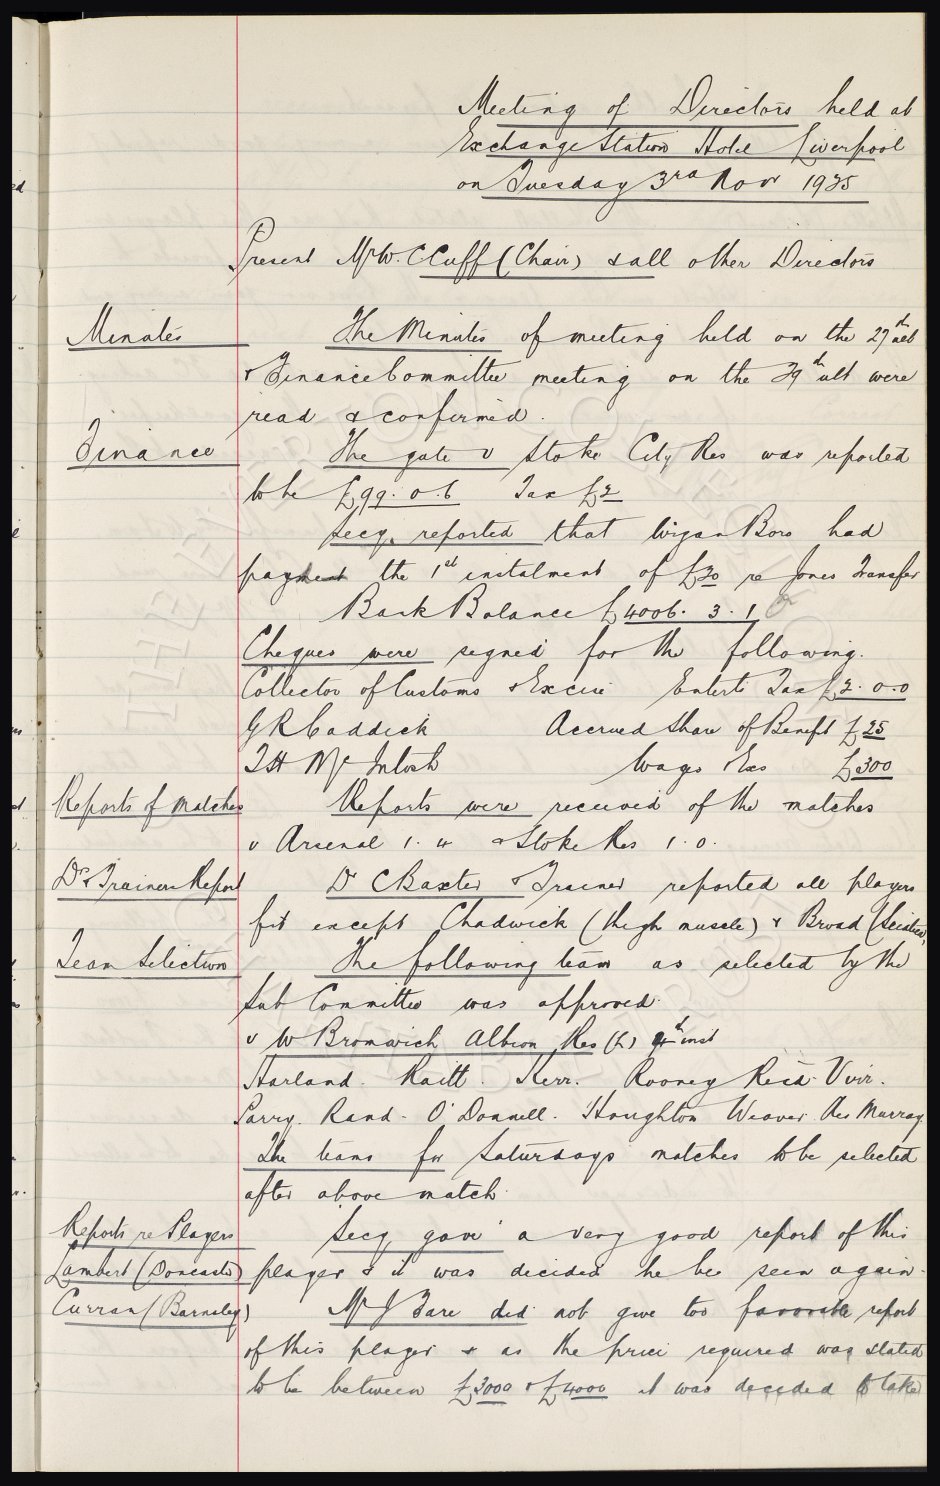 Meeting of Directors held at
Exchange Station Hotel Liverpool
on Tuesday 3rd Novr 1925
Present Mr W. C Cuff (Chair) & all other Directors
Minutes The Minutes of meeting held on the 27th ult
& Finance Committee meeting on the 29th ult were
read & confirmed.
Finance The gate v Stoke City Res was reported
to be £99. 0. 6 Tax £2
Secy. reported that Wigan Boro had
payment the 1st instalment of £30 re Jones Transfer
Bank Balance £4006. 3. 1
Cheques were signed for the following.
Collector of Customs & Excise Entert. Tax £2. 0. 0
G R Caddick Accrued Share of Benefit £25
T H McIntosh Wages & Exs £300
Reports of Matches Reports were received of the matches
v Arsenal 1. 4 & Stoke Res 1. 0.
Dr & Trainers Report Dr C Baxter & Trainer reported all players
fit except Chadwick (thigh muscle) & Broad (Sciatica)
Team Selection The following team as selected by the
Sub Committee was approved.
v W Bromwich Albion Res (h) 4th inst
Harland. Raitt. Kerr. Rooney Reid. Virr.
Parry. Rand. O'Donnell. Houghton Weaver. Res Murray
The teams for Saturdays matches to be selected
after above match.
Reports re Players Secy gave a very good report of this
Lambert (Doncaster) player & it was decided he be seen again.
Curran (Barnsley) Mr J Fare did not give too favorable report
of this player & as the price required was stated
to be between £3000 & £4000 it was decided to take
THE EVERTON COLLECTION
CHARITABLE TRUST